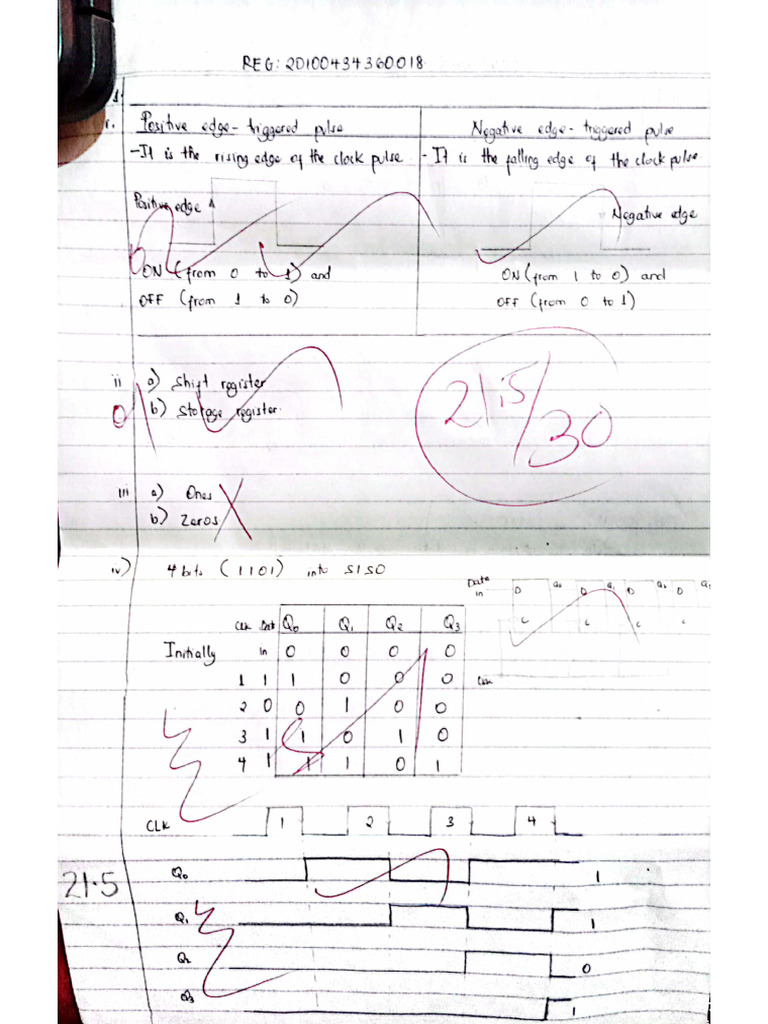 REG: 20100434360018
1.
i. Positive edge-triggered pulse Negative edge-triggered pulse
-It is the rising edge of the clock pulse - It is the falling edge of the clock pulse
Positive edge Negative edge
ON (from 0 to 1) and ON (from 1 to 0) and
OFF (from 1 to 0) OFF (from 0 to 1)
ii a) Shift register
b) Storage register.
21.5/30
iii a) Ones
b) Zeros
iv) 4 bits (1101) into SISO
Data in D Q0 D Q1 D Q2 D Q3
C C C C
Clk
Clk Data in Q0 Q1 Q2 Q3
Initially 0 0 0 0
1 1 1 0 0 0
2 0 0 1 0 0
3 1 1 0 1 0
4 1 1 1 0 1
CLK 1 2 3 4
Q0 1
21.5
Q1 1
Q2 0
Q3 1